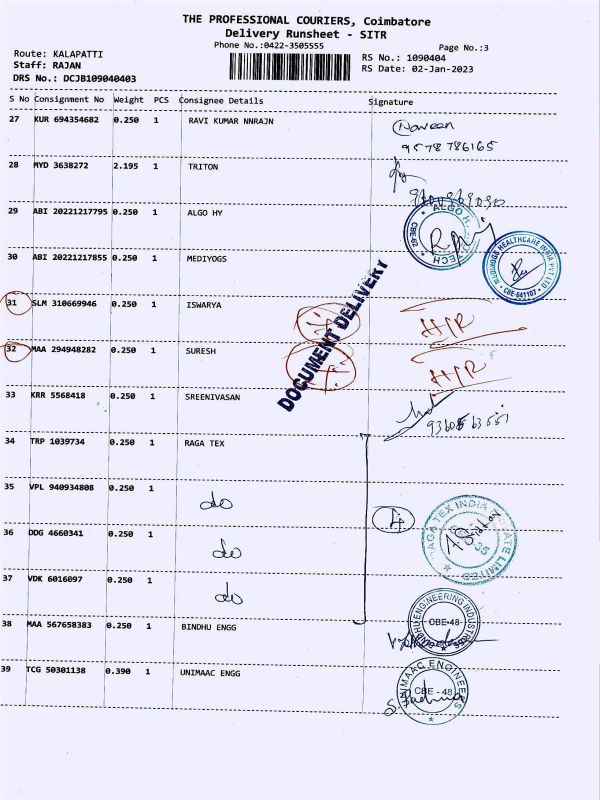 THE PROFESSIONAL COURIERS, Coimbatore
Delivery Runsheet - SITR
Phone No.:0422-3505555
Page No.:3
Route: KALAPATTI
RS No.: 1090404
Staff: RAJAN
RS Date: 02-Jan-2023
DRS No.: DCJB109040403
S No Consignment No Weight PCS Consignee Details Signature
27 KUR 694354682 0.250 1 RAVI KUMAR NNRAJN Naveen
9578786165
28 MYD 3638272 2.195 1 TRITON
29 ABI 20221217795 0.250 1 ALGO HY
ALGO H
CBE-62
30 ABI 20221217855 0.250 1 MEDIYOGS
HEALTHCARE INDIA PVT LTD
CBE-641107
DOCUMENT DELIVERY
31 SLM 310669946 0.250 1 ISWARYA
32 MAA 294948282 0.250 1 SURESH
33 KRR 5568418 0.250 1 SREENIVASAN
34 TRP 1039734 0.250 1 RAGA TEX
35 VPL 940934808 0.250 1 do
4
RAGA TEX INDIA PRIVATE LIMITED
36 DDG 4660341 0.250 1 do
37 VDK 6016097 0.250 1 do
38 MAA 567658383 0.250 1 BINDHU ENGG
BINDHU ENGINEERING INDUSTRIES
CBE-48
39 TCG 50301138 0.390 1 UNIMAAC ENGG
UNIMAAC ENGINEERS
CBE - 48